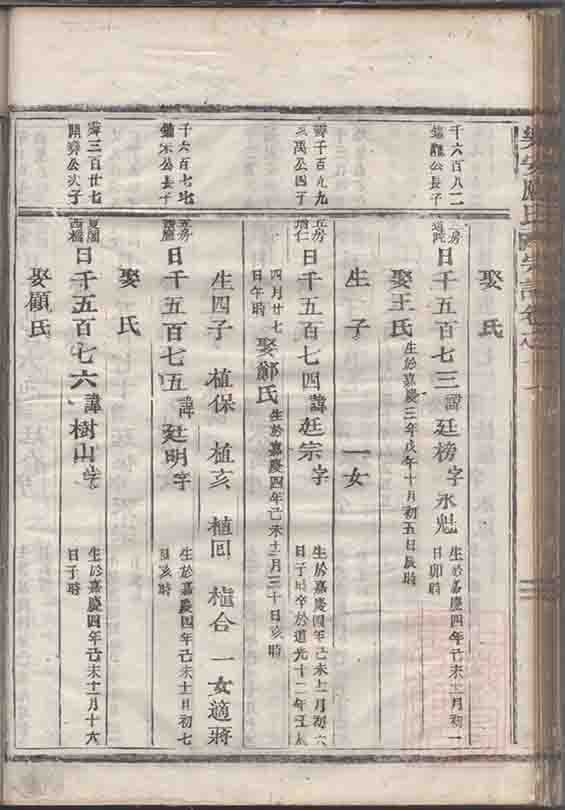 娶 氏
千六百八二
鎡龍公長子
日千五百七三諱廷榜字永魁 生於嘉慶四年己未十月初一
日卯時
娶王氏 生於嘉慶三年戊午十月初五日辰時
生 子 一女
霽千百九九
公四子
房
增仁
日千五百七四諱廷宗字 生於嘉慶四年己未十一月初六
日子時卒於道光十二年壬辰
四月廿七
日午時
娶鄭氏 生於嘉慶四年己未十二月三十日亥時
生四子 植保 植亥 植回 植合 一女適蔣
千六百七七
公長子
日千五百七五諱廷明字 生於嘉慶四年己未十一月初七
日亥時
娶 氏
霽三百廿七
開舜公次子
夏閣
西橋
日千五百七六諱樹山字 生於嘉慶四年己未十一月十六
日子時
娶顧氏